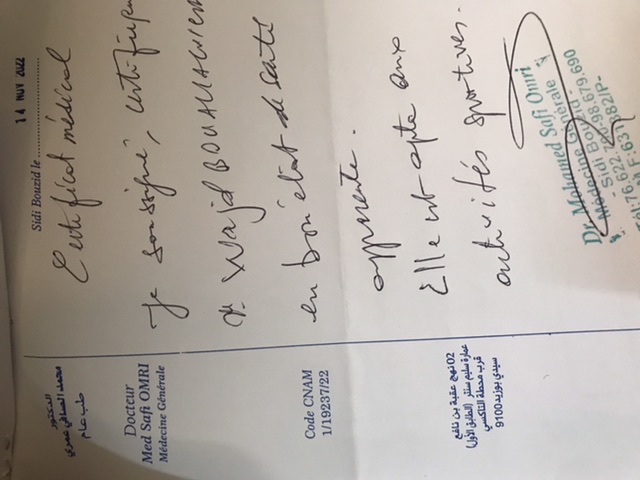 الدكتور
محمد الصافي عمري
طب عام
Docteur
Med Safi OMRI
Médecine Générale
Code CNAM
1/19237/22
02 نهج عقبة بن نافع
عمارة سليم سنتر (الطابق الأول)
قرب محطة التاكسي
سيدي بوزيد 9100
Sidi Bouzid le 14 NOV 2022
Certificat médical
Je soussigné, certifie que
en bon état de santé
apparente.
Elle est apte aux
activités sportives.
Dr. Mohamed Safi Omri
Médecine Générale
- Sidi Bouzid -